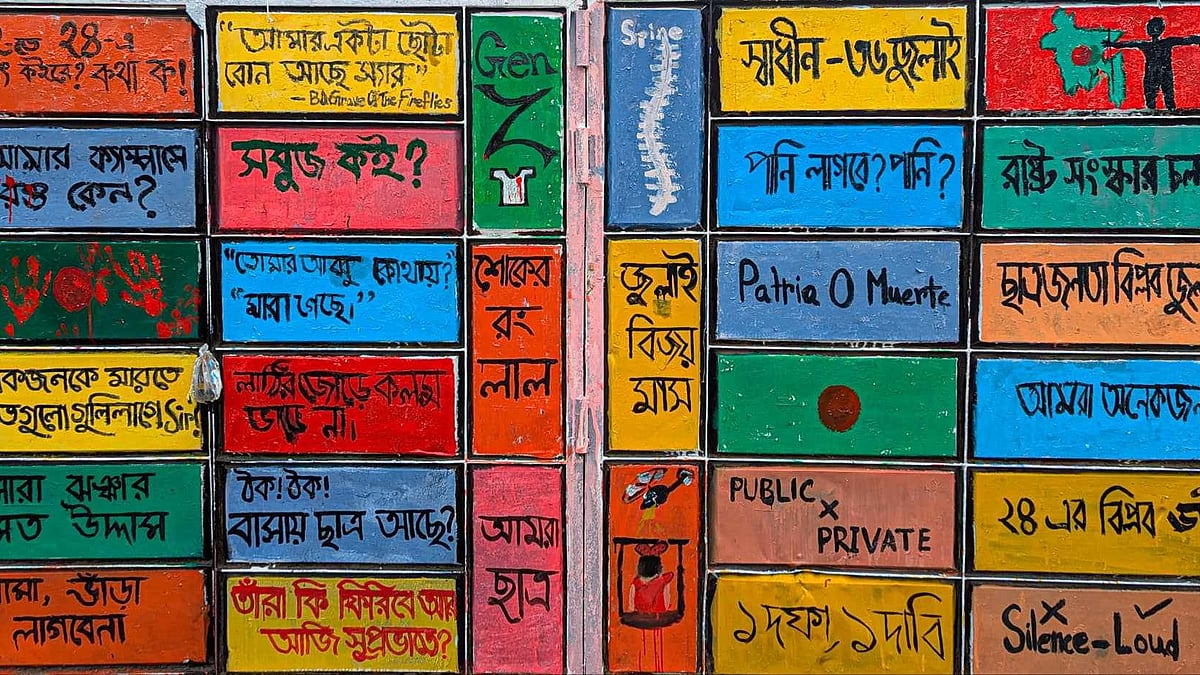 ২৪-এ
কইরে? কথা ক!
"আমার একটা ছোট্ট
বোন আছে স্যার"
- BD Grave Of The Fireflies
Gen
Z
Spine
স্বাধীন - ৩৬ জুলাই
আমার ক্যাম্পাসে
রক্ত কেন?
সবুজ কই?
পানি লাগবে? পানি?
রাষ্ট্র সংস্কার চল
"তোমার আব্বু কোথায়?"
"মারা গেছে।"
শোকের
রং
লাল
জুলাই
বিজয়
মাস
Patria O Muerte
ছাত্রজনতা বিপ্লব
মারতে
গুলি লাগে Sir?
লাঠির জোড়ে কলম
ভাঙে না।
আমরা অনেকজন
ঝঞ্ঝার
উদ্দাম
ঠক! ঠক!
বাসায় ছাত্র আছে?
আমরা
ছাত্র
PUBLIC
x
PRIVATE
২৪ এর বিপ্লব
ভাঁড়া
লাগবেনা
তাঁরা কি ফিরিবে আর
আজি সুপ্রভাতে?
১দফা, ১দাবি
Silence - Loud